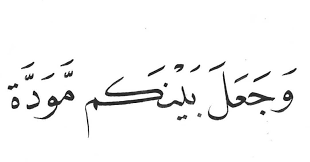 وَجَعَلَ بَيْنَكُم مَّوَدَّةً